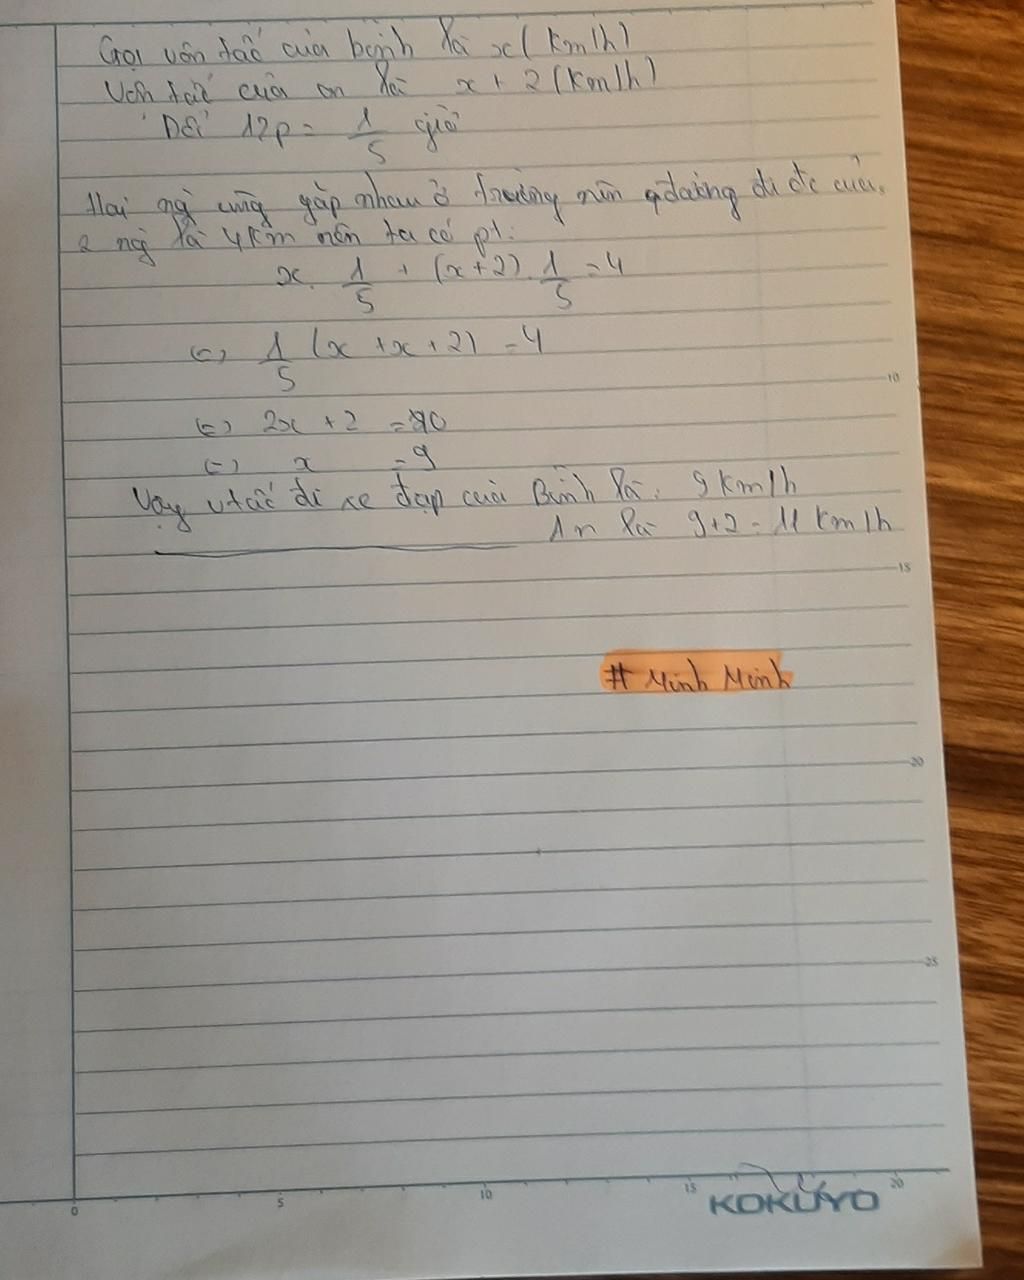 Gọi vận tốc của bạnh là x (km/h)
Vận tốc của an là x + 2 (km/h)
Đổi 12p = 1/5 giờ
Hai ng cùg gặp nhau ở trường nên qđường đi đc của
2 ng là 4km nên ta có pt:
x. 1/5 + (x+2). 1/5 = 4
(=) 1/5 (x + x + 2) = 4
(=) 2x + 2 = 20
(=) x = 9
Vậy vtốc đi xe đạp của Bình là: 9 km/h
An là 9+2 = 11 km/h
10
15
# Minh Minh
20
25
0 5 10 15 20
KOKUYO